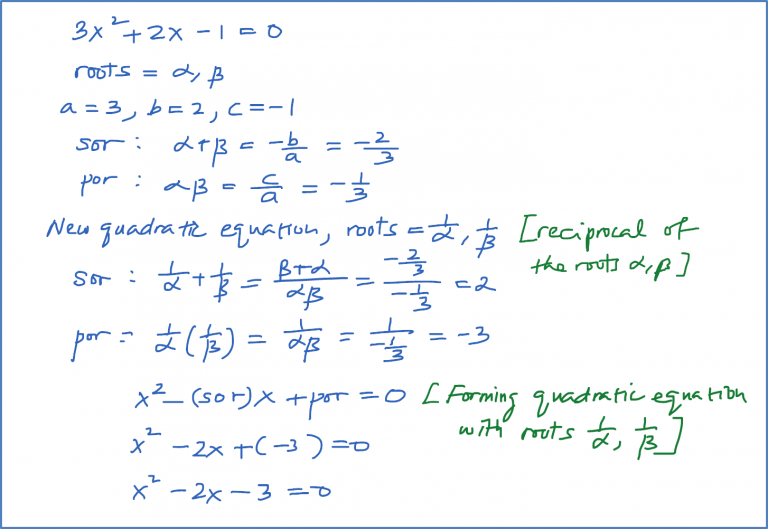 3x²+2x-1=0
roots = α, β
a=3, b=2, c=-1
sor : α+β = -b/a = -2/3
por : αβ = c/a = -1/3
New quadratic equation, roots = 1/α, 1/β [reciprocal of
the roots α, β]
sor : 1/α + 1/β = (β+α)/αβ = (-2/3)/(-1/3) = 2
por = 1/α (1/β) = 1/αβ = 1/(-1/3) = -3
x² - (sor)x + por = 0 [Forming quadratic equation
with roots 1/α, 1/β]
x² - 2x + (-3) = 0
x² - 2x - 3 = 0